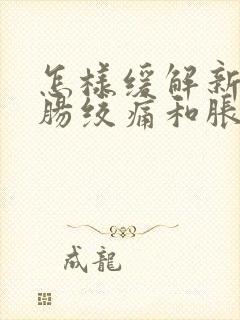 怎樣緩解新
腸絞痛和脹
成龍